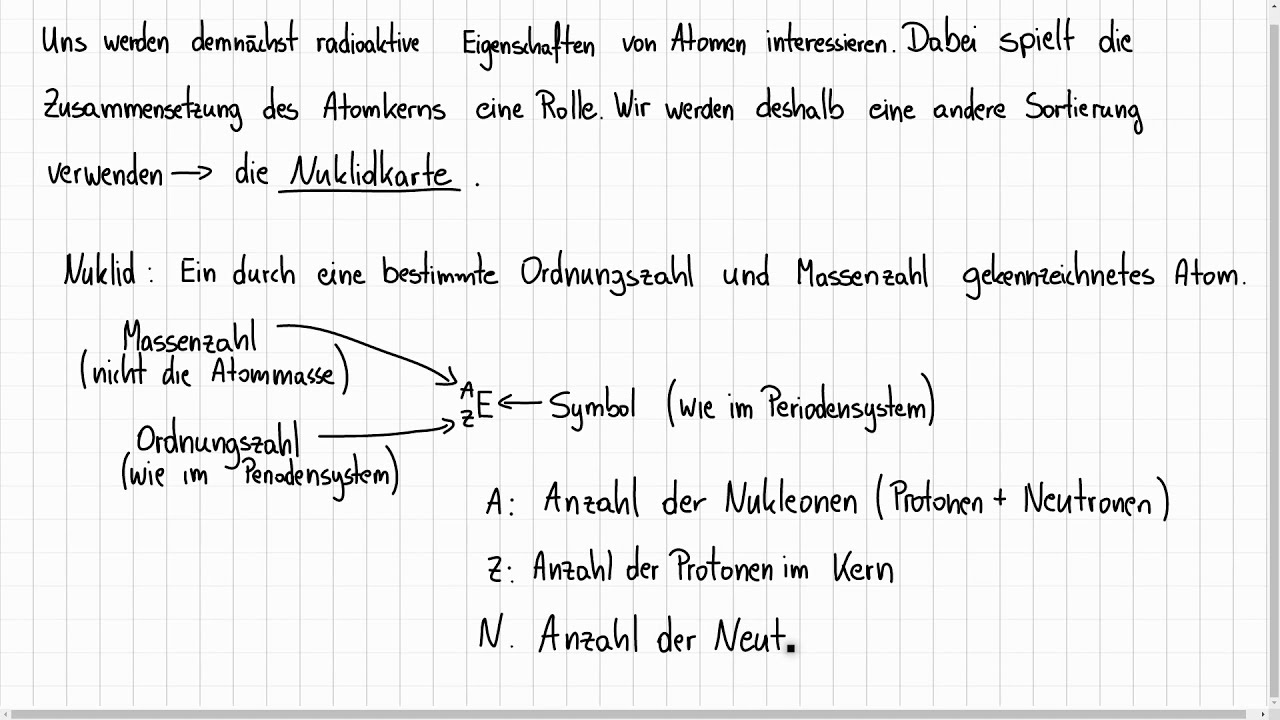 Uns werden demnächst radioaktive Eigenschaften von Atomen interessieren. Dabei spielt die
Zusammensetzung des Atomkerns eine Rolle. Wir werden deshalb eine andere Sortierung
verwenden → die Nuklidkarte.
Nuklid: Ein durch eine bestimmte Ordnungszahl und Massenzahl gekennzeichnetes Atom.
Massenzahl
(nicht die Atommasse)
A
Z E ← Symbol (wie im Periodensystem)
Ordnungszahl
(wie im Periodensystem)
A: Anzahl der Nukleonen (Protonen + Neutronen)
Z: Anzahl der Protonen im Kern
N. Anzahl der Neut